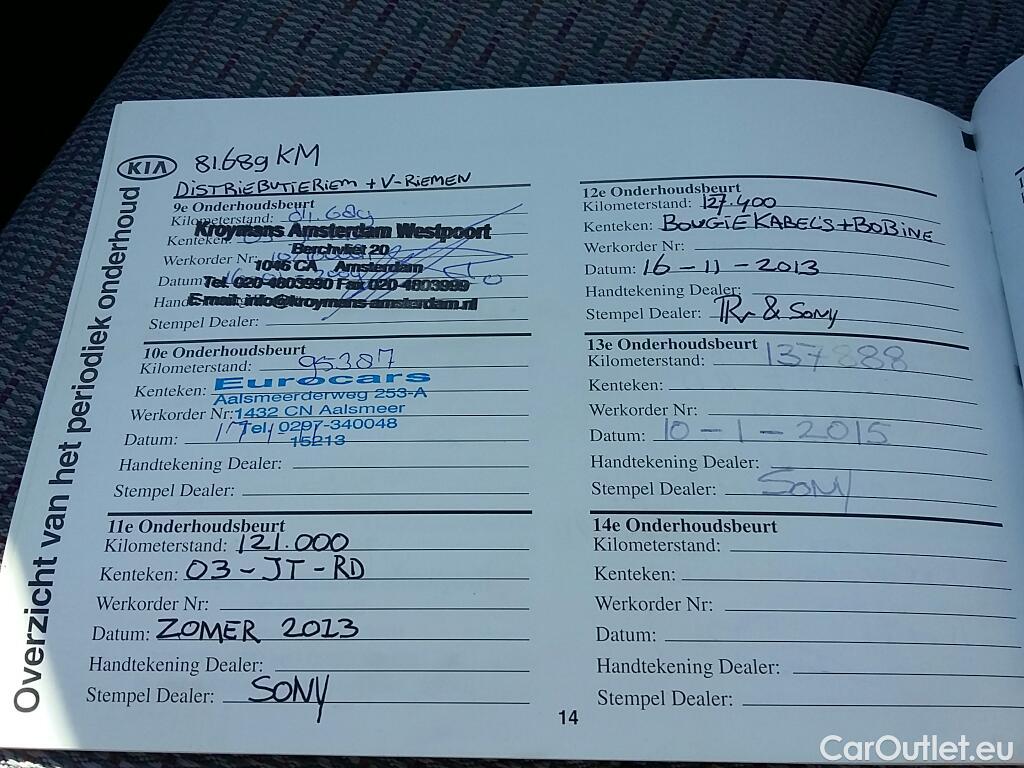 Overzicht van het periodiek onderhoud
KIA 81.689 KM
DISTRIEBUTIERIEM + V-RIEMEN
9e Onderhoudsbeurt
Kilometerstand: 81.689
Kroymans Amsterdam Westpoort
Kenteken:
Berchvliet 20
Werkorder Nr:
1046 CA Amsterdam
Datum:
Tel. 020-4803990 Fax 020-4803999
E-mail: info@kroymans-amsterdam.nl
Stempel Dealer:
10e Onderhoudsbeurt
Kilometerstand: 95387
Eurocars
Kenteken:
Aalsmeerderweg 253-A
Werkorder Nr:
1432 CN Aalsmeer
Datum:
Tel. 0297-340048
15213
Handtekening Dealer:
Stempel Dealer:
11e Onderhoudsbeurt
Kilometerstand: 121.000
Kenteken: 03-JT-RD
Werkorder Nr:
Datum: ZOMER 2013
Handtekening Dealer:
Stempel Dealer: SONY
12e Onderhoudsbeurt
Kilometerstand: 127.400
Kenteken: BOUGIEKABEL'S+BOBINE
Werkorder Nr:
Datum: 16-11-2013
Handtekening Dealer:
Stempel Dealer: & SONY
13e Onderhoudsbeurt
Kilometerstand: 137888
Kenteken:
Werkorder Nr:
Datum: 10-1-2015
Handtekening Dealer:
Stempel Dealer: SONY
14e Onderhoudsbeurt
Kilometerstand:
Kenteken:
Werkorder Nr:
Datum:
Handtekening Dealer:
Stempel Dealer:
14
CarOutlet.eu